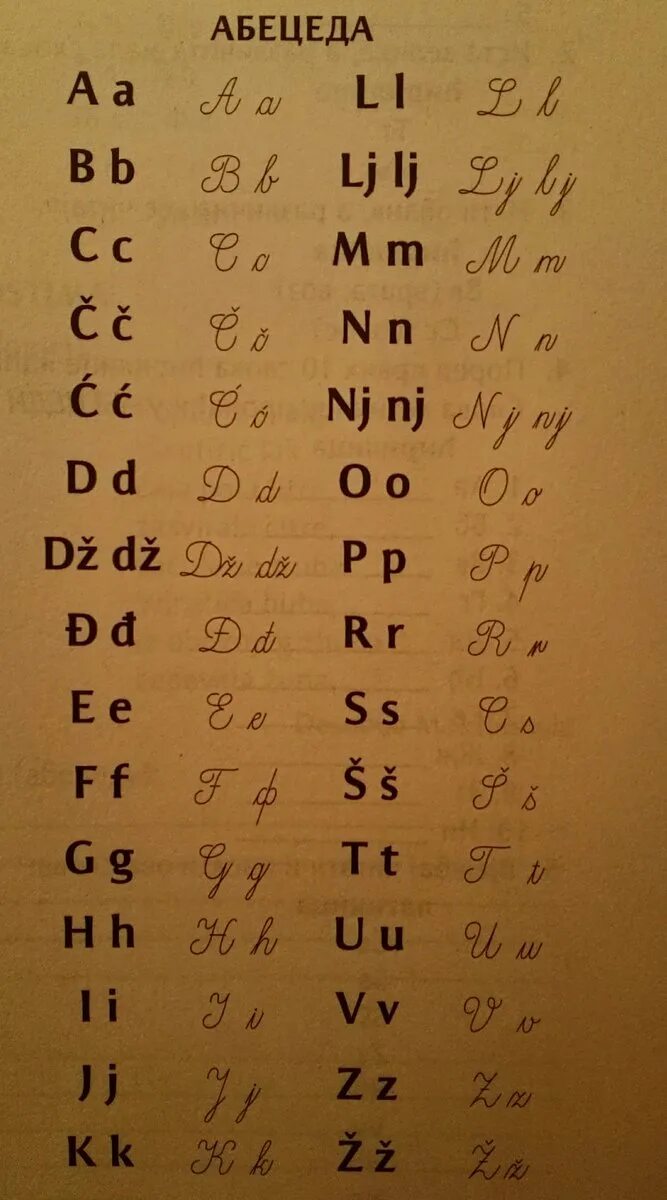 АБЕЦЕДА
A a A a
B b B b
C c C c
Č č Č č
Ć ć Ć ć
D d D d
Dž dž Dž dž
Đ đ Đ đ
E e E e
F f F ф
G g G g
H h H h
I i I i
J j J j
K k K k
L l L l
Lj lj Lj lj
M m M m
N n N n
Nj nj Nj nj
O o O o
P p P p
R r R r
S s S s
Š š Š š
T t T t
U u U u
V v V v
Z z Z z
Ž ž Ž ž